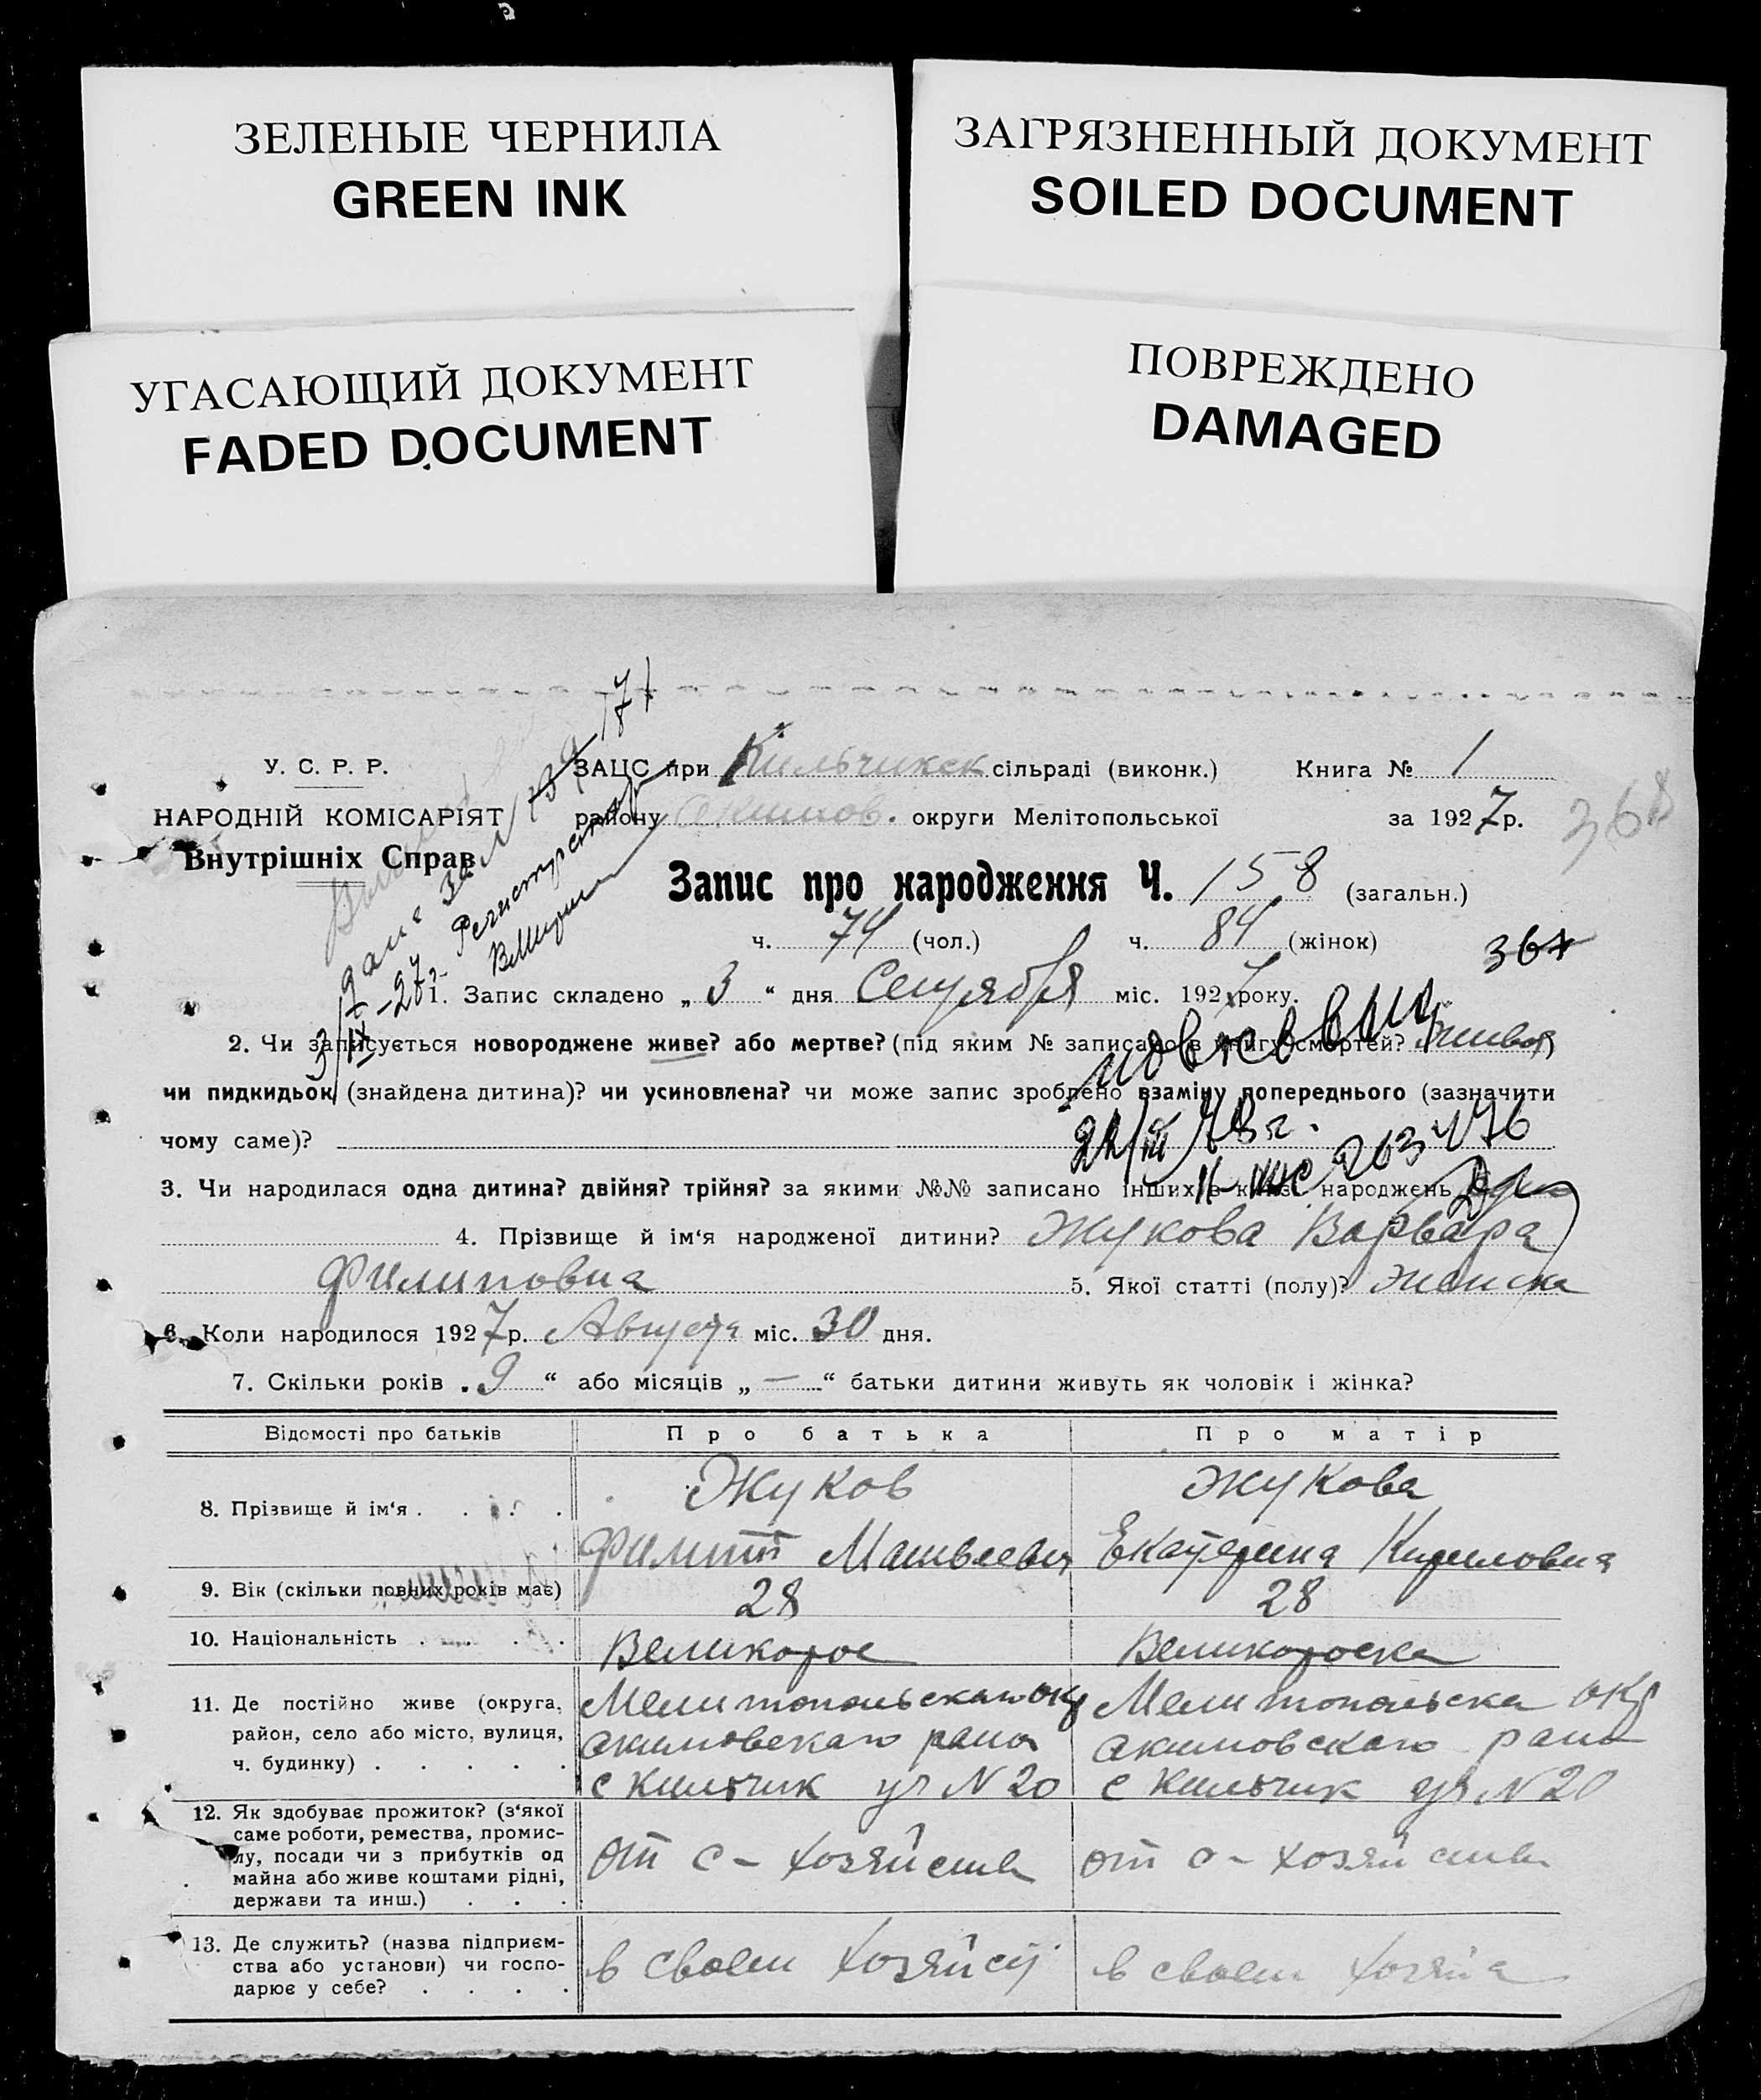 ЗЕЛЕНЫЕ ЧЕРНИЛА
GREEN INK
ЗАГРЯЗНЕННЫЙ ДОКУМЕНТ
SOILED DOCUMENT
УГАСАЮЩИЙ ДОКУМЕНТ
FADED DOCUMENT
ПОВРЕЖДЕНО
DAMAGED
У. С. Р. Р.
НАРОДНІЙ КОМІСАРІЯТ
Внутрішніх Справ
ЗАЦС при Кильчикск сільраді (виконк.) Книга № 1
району Акимов. округи Мелітопольської за 1927 р.
368
Запис про народження Ч. 158 (загальн.)
ч. 74 (чол.) ч. 84 (жінок)
367
1. Запис складено „3“ дня Сентября міс. 1927 року.
2. Чи записується новороджене живе? або мертве? (під яким № записано в книгу смертей?
чи пидкидьок (знайдена дитина)? чи усиновлена? чи може запис зроблено взаміну попереднього (зазначити
чому саме)?
3. Чи народилася одна дитина? двійня? трійня? за якими №№ записано інших в книзі народжень
4. Прізвище й ім‘я народженої дитини? Жукова Варвара
Филиповна 5. Якої статті (полу)? женска
6. Коли народилося 1927 р. Августа міс. 30 дня.
7. Скільки років „9“ або місяців „—“ батьки дитини живуть як чоловік і жінка?
Відомості про батьків Про батька Про матір
8. Прізвище й ім‘я Жуков Жукова
Филипп Матвеевич Екатерина Кириловна
9. Вік (скільки повних років має) 28 28
10. Національність Великорос Великороска
11. Де постійно живе (округа, район, село або місто, вулиця, ч. будинку)
Мелитопольскаго окр Мелитопольска окр
Акимовскаго раио Акимовскаго раио
с Кильчик ул N 20 с Кильчик ул N 20
12. Як здобуває прожиток? (з‘якої
саме роботи, ремества, промис-
лу, посади чи з прибутків од
майна або живе коштами рідні,
держави та инш.)
от с - хозяйства от с - хозяйства
13. Де служить? (назва підприєм-
ства або установи) чи госпо-
дарює у себе?
в своем хозяйст в своем